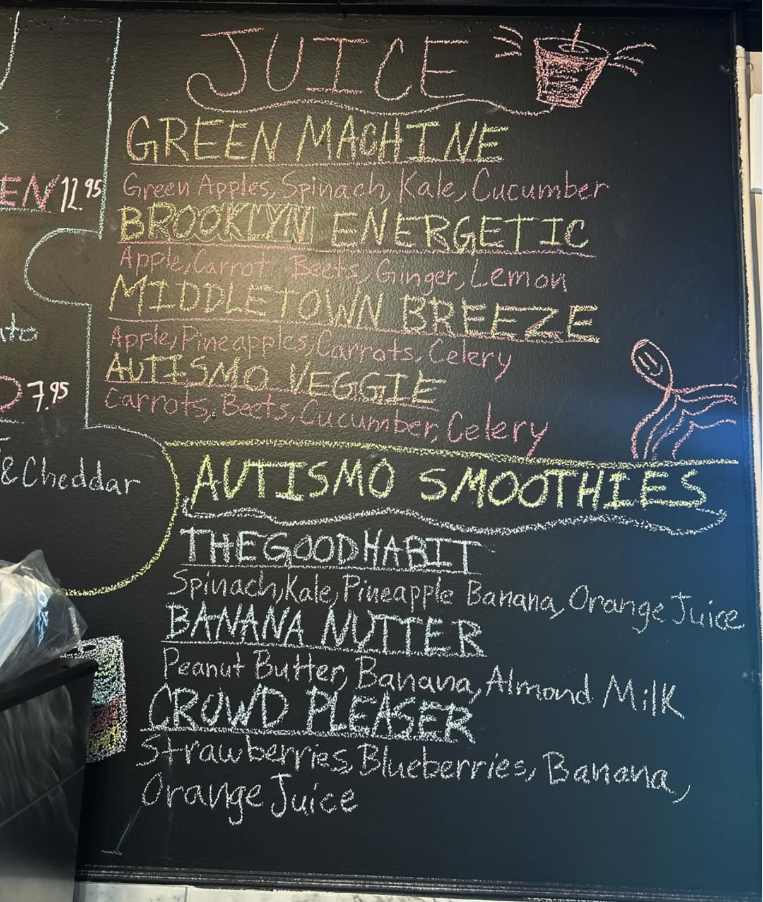 JUICE
GREEN MACHINE
Green Apples, Spinach, Kale, Cucumber
BROOKLYN ENERGETIC
Apple, Carrot Beets, Ginger, Lemon
MIDDLETOWN BREEZE
Apple, Pineapples, Carrots, Celery
AUTISMO VEGGIE
Carrots, Beets, Cucumber, Celery
AUTISMO SMOOTHIES
THEGOODHABIT
Spinach, Kale, Pineapple Banana, Orange Juice
BANANA NUTTER
Peanut Butter, Banana, Almond Milk
CROWD PLEASER
Strawberries, Blueberries, Banana,
Orange Juice
12.95
7.95
& Cheddar